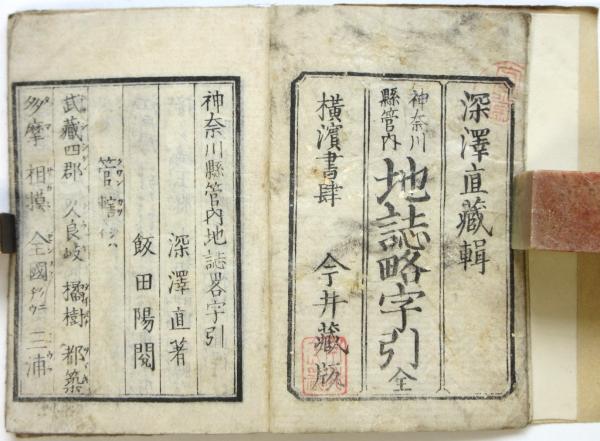 深澤直藏輯
神奈川
縣管内
地誌略字引 全
橫濱書肆 今井藏版
神奈川縣管内地誌畧字引
深澤直著
飯田陽閲
管轄
武藏四郡 久良岐 橘樹 都築
多摩 相摸 全國 三浦